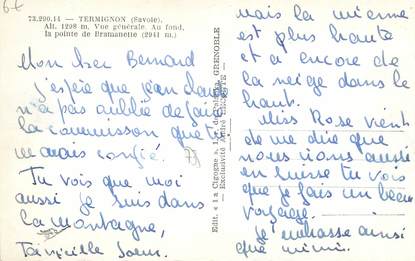 6€
73.290.14 - TERMIGNON (Savoie)
Alt. 1298 m. Vue générale. Au fond,
la pointe de Bramanette (2941 m.)
Mon cher Bernard
j'espère que Jean Claude
n'a pas oublié de faire
la commission que tu
m'avais confié.
Tu vois que moi
aussi je suis dans
la montagne,
Ta vieille
Edit. « la Cigogne » GRENOBLE
- Exclusivité André
mais la mienne
est plus haute
et a encore de
la neige dans le
haut.
Miss Rose vient
de me dire que
nous irons aussi
en Suisse tu vois
que je fais un beau
voyage.
Je t'embrasse ainsi
que mimi.